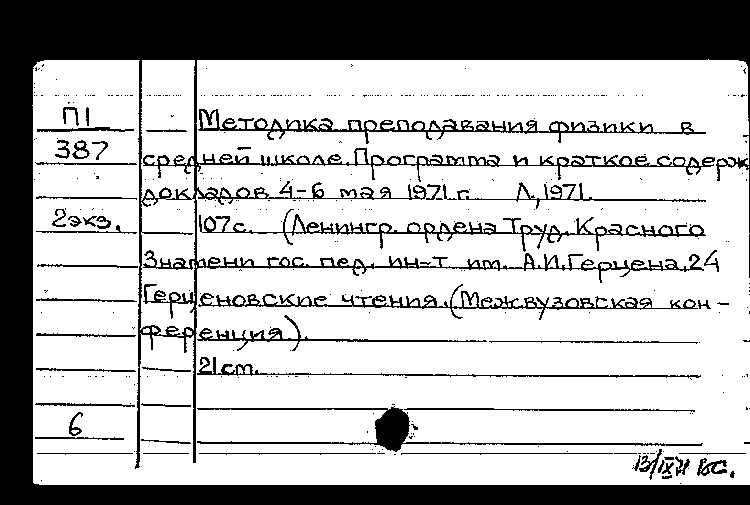 П1
387
2экз.
6
Методика преподавания физики в
средней школе. Программа и краткое содерж
докладов 4-6 мая 1971 г. Л, 1971.
107с. (Ленингр. ордена Труд. Красного
Знамени гос. пед. ин-т им. А.И. Герцена. 24
Герценовские чтения. (Межвузовская кон-
ференция).
21 cm.
13/IX 71